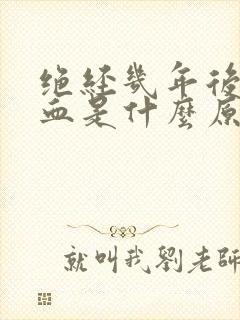 绝经几年後
血是什麼原
就叫我劉老師